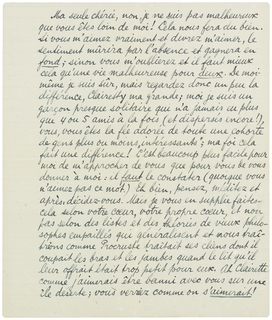 Ma seule chérie, non, je ne suis pas malheureux
que vous êtes loin de moi! Cela nous fera du bien
si vous m'aimez vraiment et devrez m'aimer, le
sentiment mûrira par l'absence et gagnera en
fond; sinon vous m'oublierez et il faut mieux
cela qu'une vie malheureuse pour deux. De moi-
même je suis sûr, mais regardez donc un peu la
différence, Clairette ma grande; moi je suis un
garçon presque solitaire qui n'a jamais eu plus
que 4 ou 5 amis à la fois (et dispersés encore!),
vous, vous êtes la fée adorée de toute une cohorte
de gens plus ou moins intéressants; ma foi cela
fait une différence! C'est beaucoup plus facile pour
moi de m'approcher de vous que pour vous de vous
donner à moi: il faut le constater (quoique vous
n'aimez pas ce mot.) Eh bien, pensez, méditez et
après: décidez-vous. Mais je vous en supplie faites-
cela selon votre cœur, votre propre cœur, et non
pas selon des listes et des théories de vieux philo-
sophes empaillés qui généralisent et nous trai-
tèrons comme Procruste traîtait ses cliens dont il
coupait les bras et les jambes quand le lit qu'il
leur offrait était trop petit pour eux. Ah Clairette
comme j'aimerais être banni avec vous sur une
île déserte; vous verrez comme on s'aimerait!